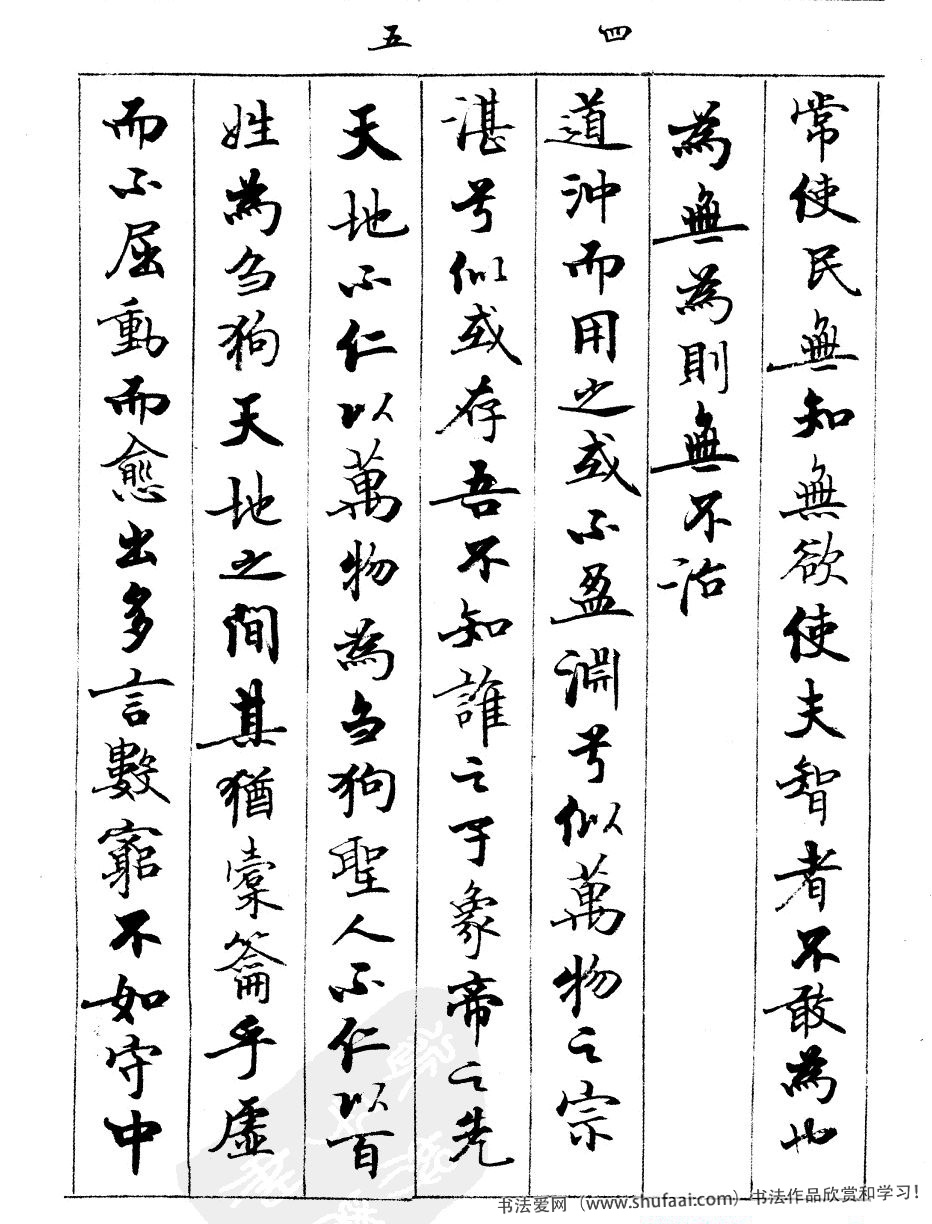 四
五
常使民無知無欲使夫智者不敢為也
為無為則無不治
道沖而用之或不盈淵兮似萬物之宗
湛兮似或存吾不知誰之子象帝之先
天地不仁以萬物為芻狗聖人不仁以百
姓為芻狗天地之間其猶橐籥乎虛
而不屈動而愈出多言數窮不如守中
书法爱网（www.shufaai.com）书法作品欣赏和学习！